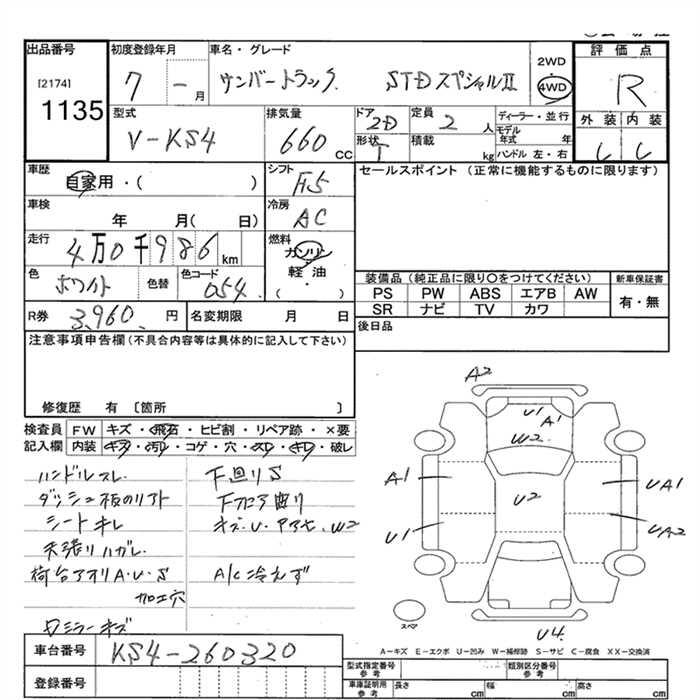 出品番号
[2174]
1135
初度登録年月
7 - 月
車名・グレード
サンバートラック STDスペシャルII
2WD
4WD
評価点
R
外装 内装
型式
V-KS4
排気量
660 CC
ドア
2D
形状
T
定員
2 人
積載
kg
ディーラー・並行
モデル年式 年
ハンドル 左・右
車歴
自家用・( )
シフト
F5
セールスポイント (正常に機能するものに限ります)
車検
年 月( 日)
冷房
AC
走行
4万0千986km
燃料
ガソリン
軽油
( )
色
ホワイト
色替
色コード
054
装備品 (純正品に限り〇をつけてください)
新車保証書
PS PW ABS エアB AW
SR ナビ TV カワ
有・無
R券 3,960 円
名変期限 月 日
後日品
注意事項申告欄(不具合内容等は具体的に記入して下さい)
修復歴 有 〔箇所 〕
検査員記入欄
FW キズ・飛石・ヒビ割・リペア跡・×要
内装 キズ・汚れ・コゲ・穴・スレ・キレ・破レ
ハンドルスレ
ダッシュ板のリフト
シートキレ
天張りハガレ
荷台アオリA・U・S
加工穴
ミラーキズ
下廻りS
キズ・U・ W2
A/C冷えず
A2
U1
A1
W2
A1
U2
UA1
U1
UA2
スペア
U4
A-キズ E-エクボ U-凹み W-補修跡 S-サビ C-腐食 XX-交換済
車台番号
KS4-260320
登録番号
型式指定番号 参考
類別区分番号 参考
車庫証明用 参考
長さ cm
幅 cm
高さ cm